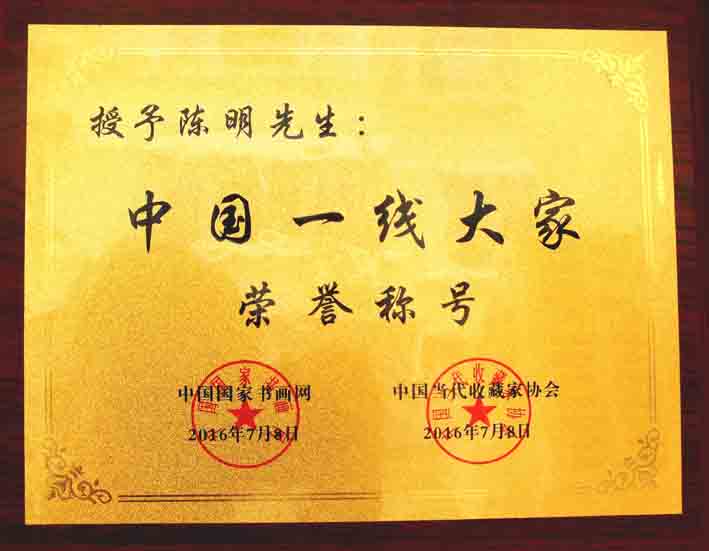 授予陈明先生：
中国一线大家
荣誉称号
中国国家书画网
2016年7月8日
中国当代收藏家协会
2016年7月8日